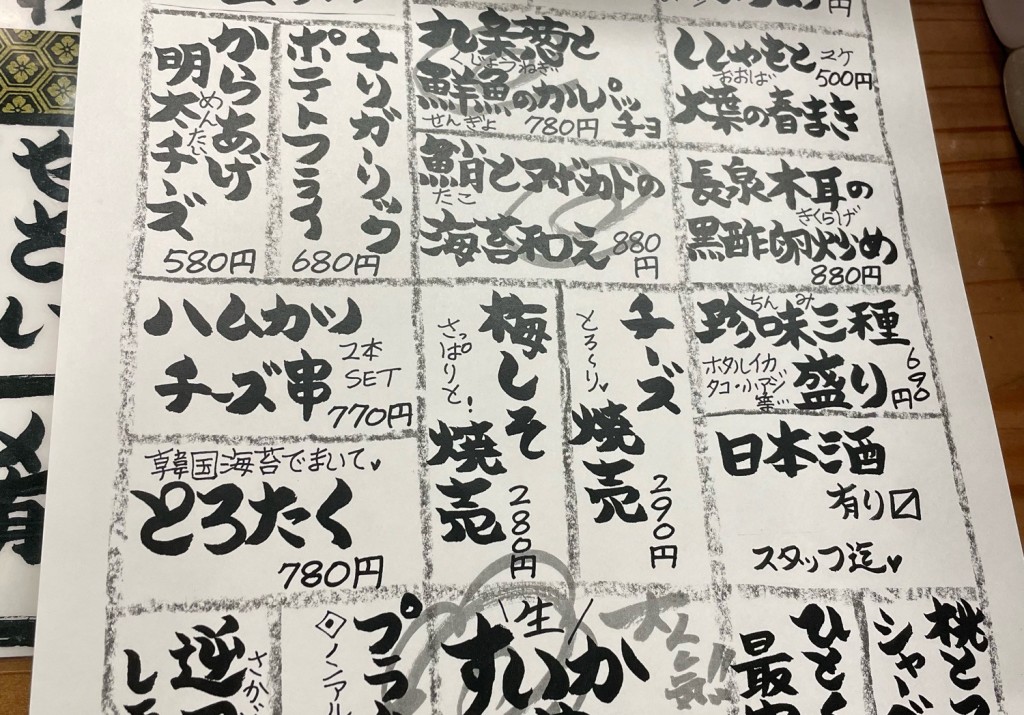 からあげ
明太チーズ
めんたい
580円
チリガーリック
ポテトフライ
680円
九条葱と
くじょうねぎ
鮮魚のカルパッチョ
せんぎょ
780円
ししゃもと
2ケ
500円
おおば
大葉の春まき
鮹とアボカドの
たこ
海苔和え
880
円
長泉木耳の
きくらげ
黒酢卵炒め
880円
ハムカツ
チーズ串
2本
SET
770円
さっぱりと!
梅しそ
焼売
280円
とろ〜り♥
チーズ
焼売
290円
ちんみ
珍味三種
盛り
ホタルイカ
タコ・小アジ
等…
690円
韓国海苔でまいて♥
とろたく
780円
日本酒
有り☑
スタッフ迄♥
逆
さか
ノンアル
プラ
\生/
すいか
大人気!!
ひとく
最
桃と
シャーベ
やさい